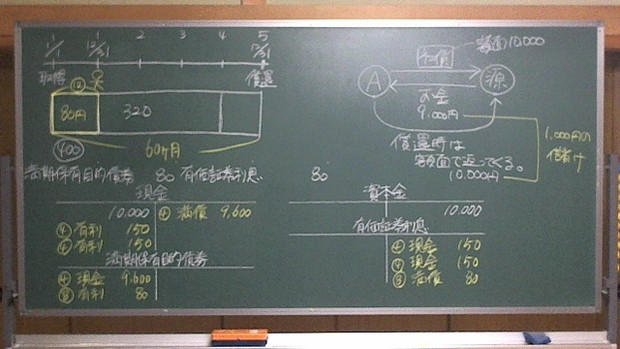 1/1 12/31 2 3 4 5 12/31
取得 償還
⑫
80円 320
400 60ヶ月
社債 額面10,000
A
お金
9,000円
償還時は
額面で返ってくる。
10,000円
1,000円の
満期保有目的債券 80 有価証券利息 80
現金
10,000 ④ 満債 9,600
④ 有利 150
④ 有利 150
満期保有目的債券
④ 現金 9,600
⑤ 有利 80
資本金
10,000
有価証券利息
④ 現金 150
④ 現金 150
⑤ 満債 80